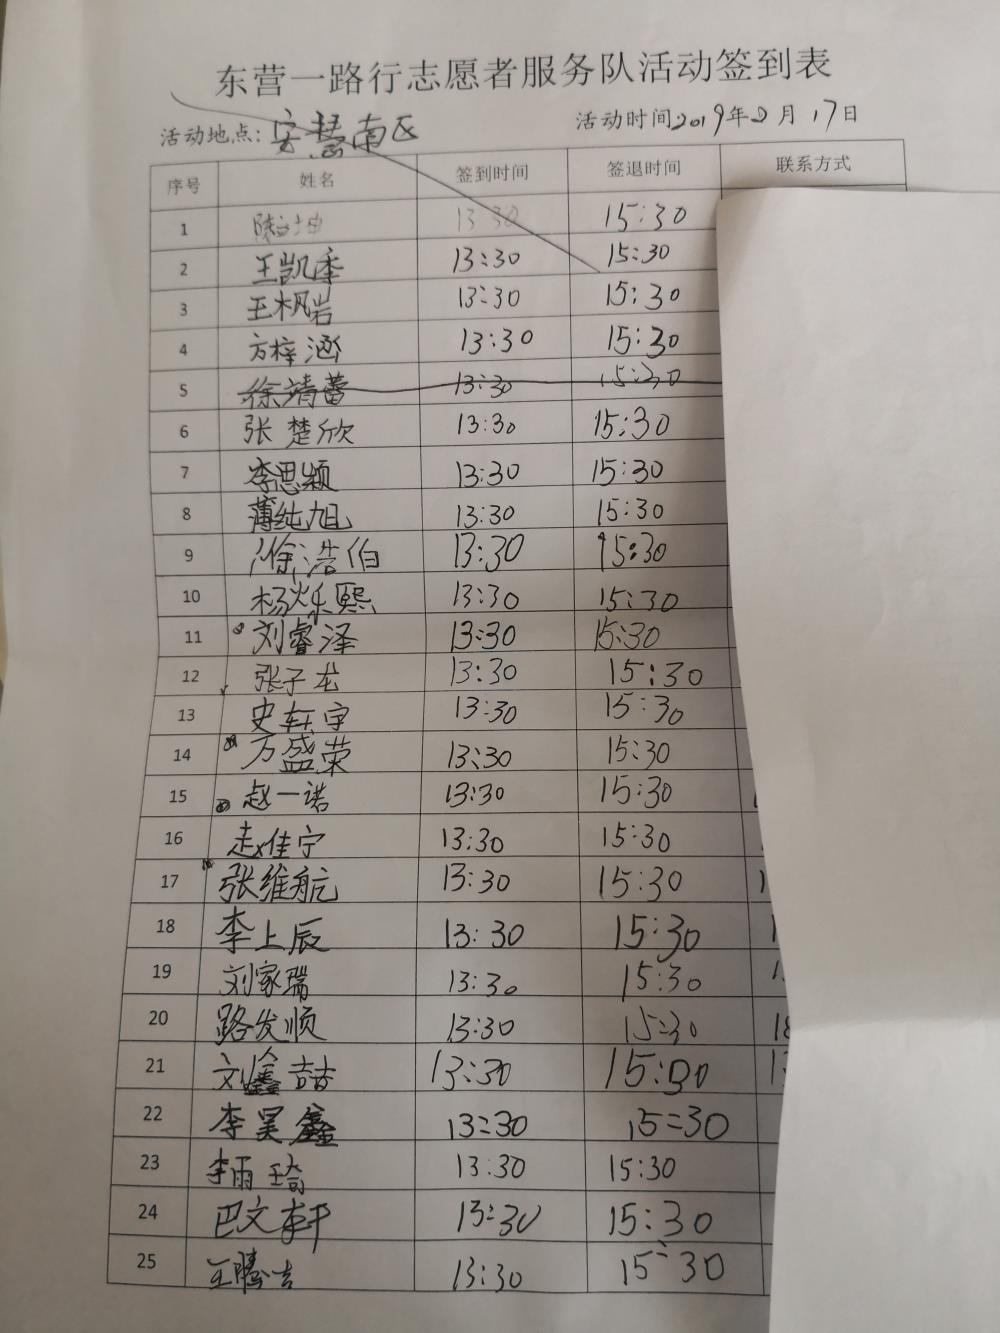 东营一路行志愿者服务队活动签到表
活动地点: 安慧南区 活动时间2019年2月17日
序号 姓名 签到时间 签退时间 联系方式
1 13:30 15:30
2 王凯季 13:30 15:30
3 王枫岩 13:30 15:30
4 方梓涵 13:30 15:30
5 徐靖蕾 13:30 15:30
6 张楚欣 13:30 15:30
7 李思颖 13:30 15:30
8 薄纯旭 13:30 15:30
9 徐浩伯 13:30 15:30
10 杨烁熙 13:30 15:30
11 刘睿泽 13:30 15:30
12 张子龙 13:30 15:30
13 史轩宇 13:30 15:30
14 万盛荣 13:30 15:30
15 赵一诺 13:30 15:30
16 赵佳宁 13:30 15:30
17 张维航 13:30 15:30
18 李上辰 13:30 15:30
19 刘家瑞 13:30 15:30
20 路发顺 13:30 15:30
21 刘鑫喆 13:30 15:30
22 李昊鑫 13:30 15:30
23 李雨琦 13:30 15:30
24 巴文轩 13:30 15:30
25 王腾 13:30 15:30